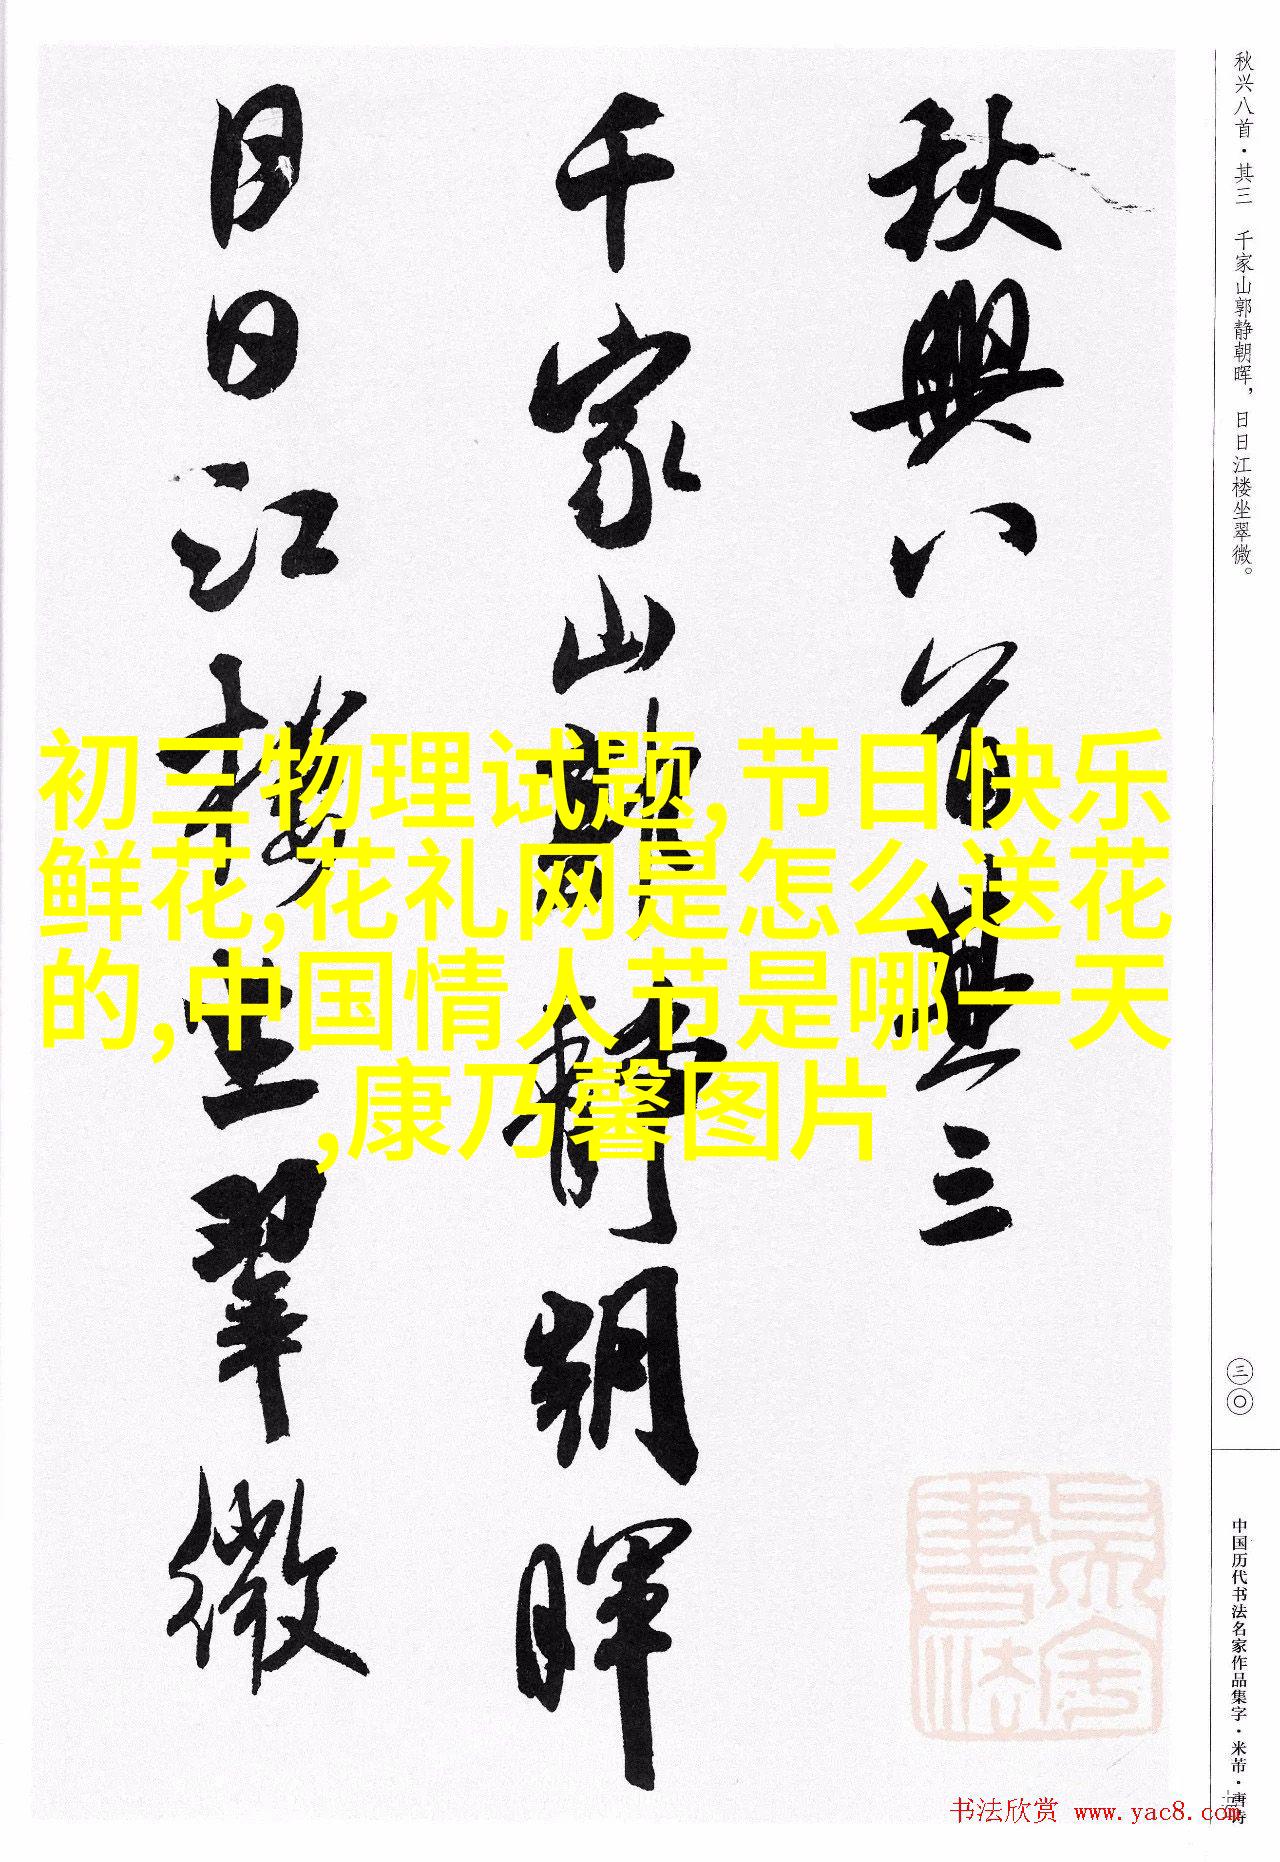 秋兴八首·其三 千家山郭静朝晖，日日江楼坐翠微。
秋興八首其三
千家山郭靜朝暉
日日江樓坐翠微
初三物理试题,节日快乐
鲜花,花礼网是怎么送花
的,中国情人节是哪一天
,康乃馨图片
三〇
中国历代书法名家作品集字·米芾·唐诗
书法欣赏 www.yac8.com